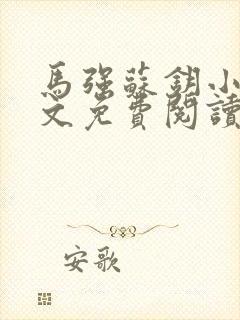 馬強蘇鈅小
文免費閱讀
安歌